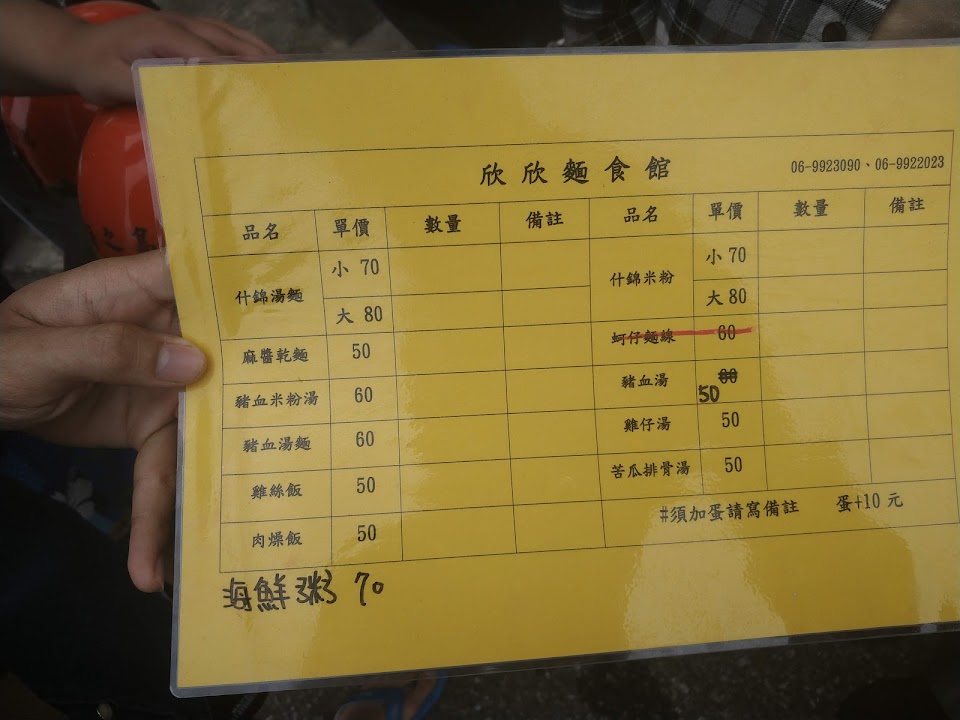 欣欣麵食館 06-9923090、06-9922023
品名 單價 數量 備註 品名 單價 數量 備註
什錦湯麵 小 70 什錦米粉 小 70
大 80 大 80
麻醬乾麵 50 蚵仔麵線 60
豬血米粉湯 60 豬血湯 80 50
豬血湯麵 60 雞仔湯 50
雞絲飯 50 苦瓜排骨湯 50
肉燥飯 50 #須加蛋請寫備註 蛋+10 元
海鮮粥 70